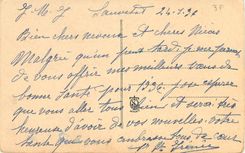 J. M. J. Lauwent 24-1-32
Bien chers neveu et chères Nièces
Malgré qu'un peu tard, je me permets
de vous offrir mes meilleurs vœux de
bonne Santé pour 1932. J'ose espérer
que vous allez tous bien et serai très
heureuse d'avoir de vos nouvelles. Votre
tante que vous embrasse tous de cœur
Sr